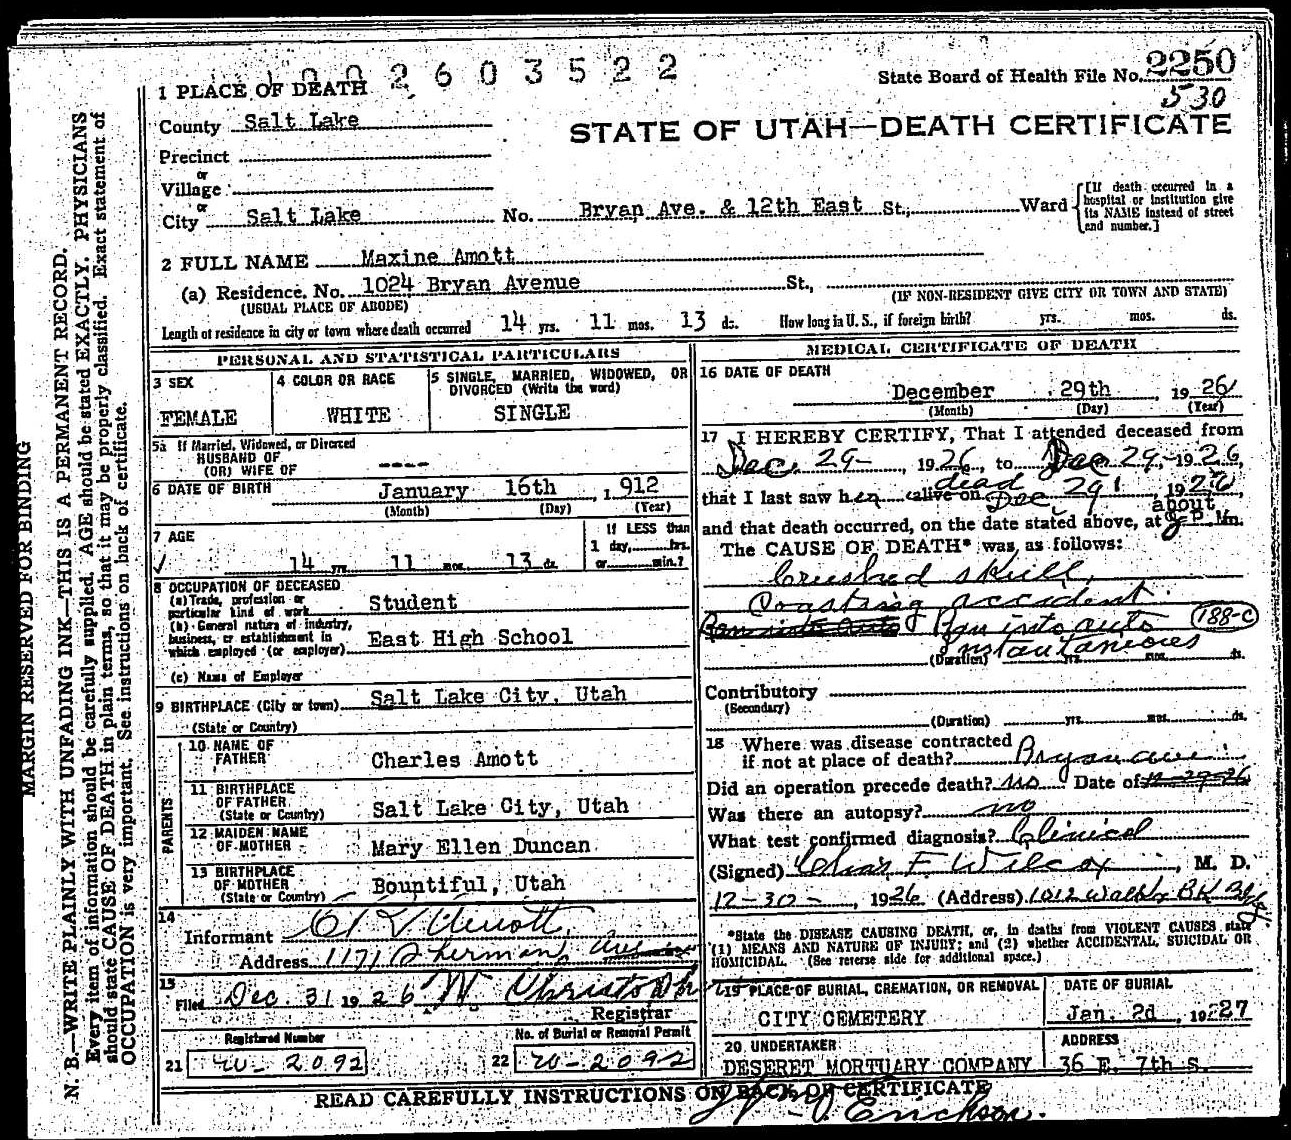 1002603522
State Board of Health File No. 2250
530
1 PLACE OF DEATH
STATE OF UTAH—DEATH CERTIFICATE
County Salt Lake
Precinct
or
Village
or
City Salt Lake No. Bryan Ave. & 12th East St., Ward
[If death occurred in a hospital or institution give its NAME instead of street and number.]
2 FULL NAME Maxine Amott
(a) Residence. No. 1024 Bryan Avenue St.,
(USUAL PLACE OF ABODE) (IF NON-RESIDENT GIVE CITY OR TOWN AND STATE)
Length of residence in city or town where death occurred 14 yrs. 11 mos. 13 ds. How long in U. S., if foreign birth? yrs. mos. ds.
PERSONAL AND STATISTICAL PARTICULARS
3 SEX
FEMALE
4 COLOR OR RACE
WHITE
5 SINGLE, MARRIED, WIDOWED, OR
DIVORCED (Write the word)
SINGLE
5a If Married, Widowed, or Divorced
HUSBAND OF
(OR) WIFE OF ----
6 DATE OF BIRTH January 16th, 1912
(Month) (Day) (Year)
7 AGE
14 yrs. 11 mos. 13 ds.
If LESS than
1 day, hrs.
or min.?
8 OCCUPATION OF DECEASED
(a) Trade, profession or
particular kind of work Student
(b) General nature of industry,
business, or establishment in
which employed (or employer) East High School
(c) Name of Employer
9 BIRTHPLACE (City or town) Salt Lake City, Utah
(State or Country)
PARENTS
10 NAME OF
FATHER Charles Amott
11 BIRTHPLACE
OF FATHER
(State or Country) Salt Lake City, Utah
12 MAIDEN NAME
OF MOTHER Mary Ellen Duncan
13 BIRTHPLACE
OF MOTHER
(State or Country) Bountiful, Utah
14
Informant Amott
Address 1171 Sherman Ave
15
Filed Dec. 31 1926 W Christoph
Registrar
Registered Number
21 W-2092
No. of Burial or Removal Permit
22 W-2092
MEDICAL CERTIFICATE OF DEATH
16 DATE OF DEATH
December 29th, 1926
(Month) (Day) (Year)
17 I HEREBY CERTIFY, That I attended deceased from
Dec. 29-, 1926, to Dec 29, 1926,
that I last saw her alive on dead Dec 29, 1926,
about
and that death occurred, on the date stated above, at 9 P. m.
The CAUSE OF DEATH* was, as follows:
Crushed skull,
Coasting accident.
Ran into auto Ran into auto 188-c
Instantaneous
(Duration) yrs. mos. ds.
Contributory
(Secondary)
(Duration) yrs. mos. ds.
18 Where was disease contracted
if not at place of death? Bryan ave
Did an operation precede death? no Date of 12-29-26
Was there an autopsy? no
What test confirmed diagnosis? Clinical
(Signed) Chas F. Wilcox, M. D.
12-30-, 1926 (Address) 1012 Walker BK Bldg
*State the DISEASE CAUSING DEATH, or, in deaths from VIOLENT CAUSES state
(1) MEANS AND NATURE OF INJURY; and (2) whether ACCIDENTAL, SUICIDAL OR
HOMICIDAL. (See reverse side for additional space.)
19 PLACE OF BURIAL, CREMATION, OR REMOVAL
CITY CEMETERY
DATE OF BURIAL
Jan. 2d, 1927
20 UNDERTAKER
DESERET MORTUARY COMPANY
ADDRESS
36 E. 7th S.
READ CAREFULLY INSTRUCTIONS ON BACK OF CERTIFICATE
Erickson.
MARGIN RESERVED FOR BINDING
N. B.—WRITE PLAINLY WITH UNFADING INK—THIS IS A PERMANENT RECORD.
Every item of information should be carefully supplied. AGE should be stated EXACTLY. PHYSICIANS
should state CAUSE OF DEATH in plain terms, so that it may be properly classified. Exact statement of
OCCUPATION is very important. See instructions on back of certificate.